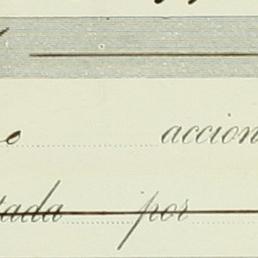 o accion
tada por